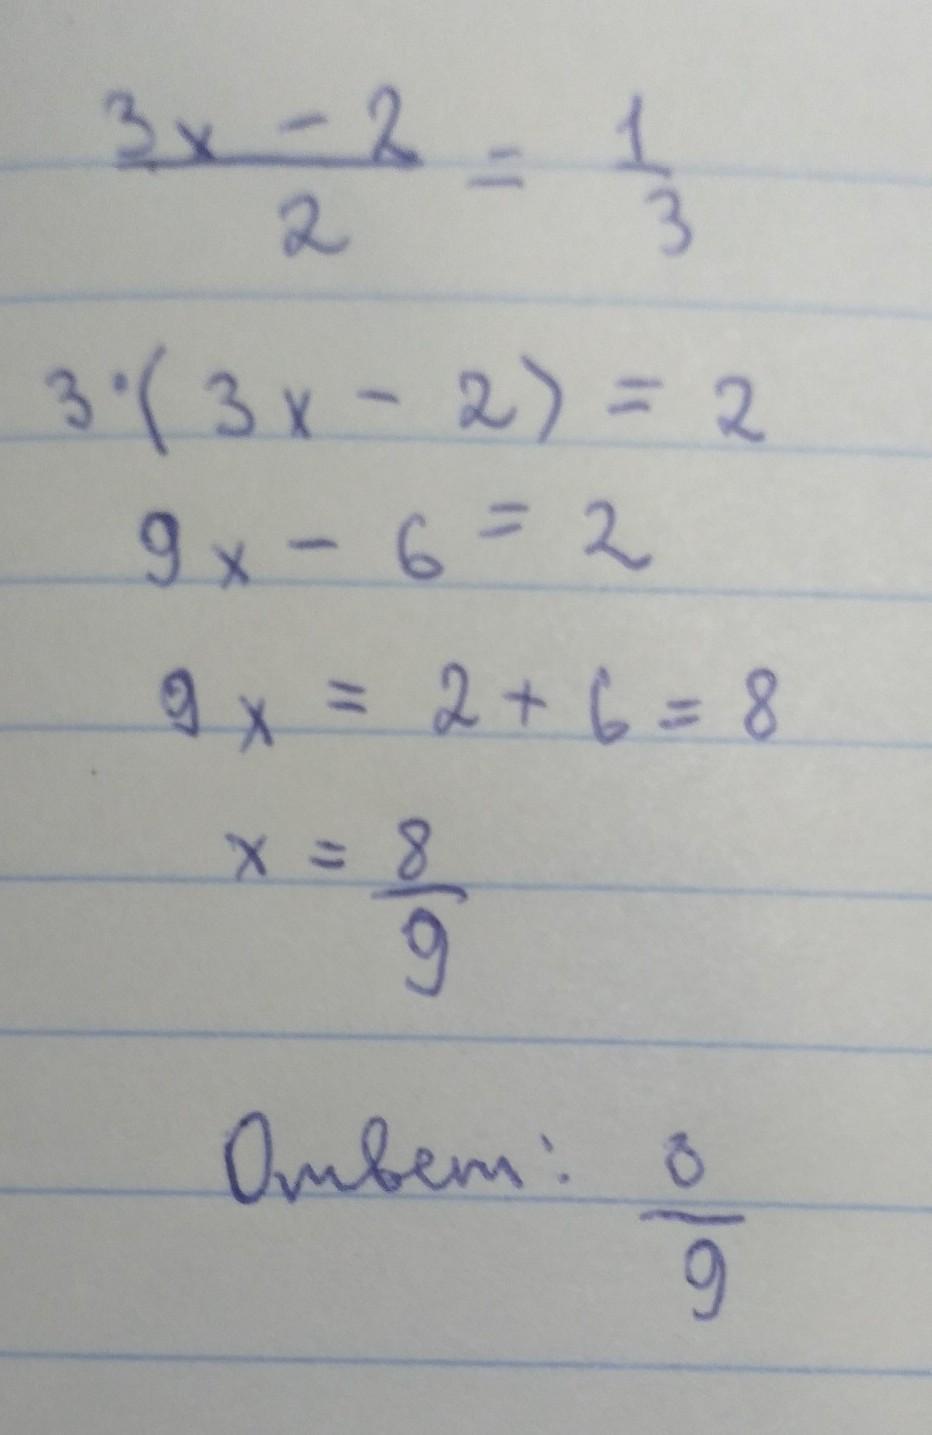 3x - 2 / 2 = 1 / 3
3·(3x - 2) = 2
9x - 6 = 2
9x = 2 + 6 = 8
x = 8 / 9
Ответ: 8 / 9